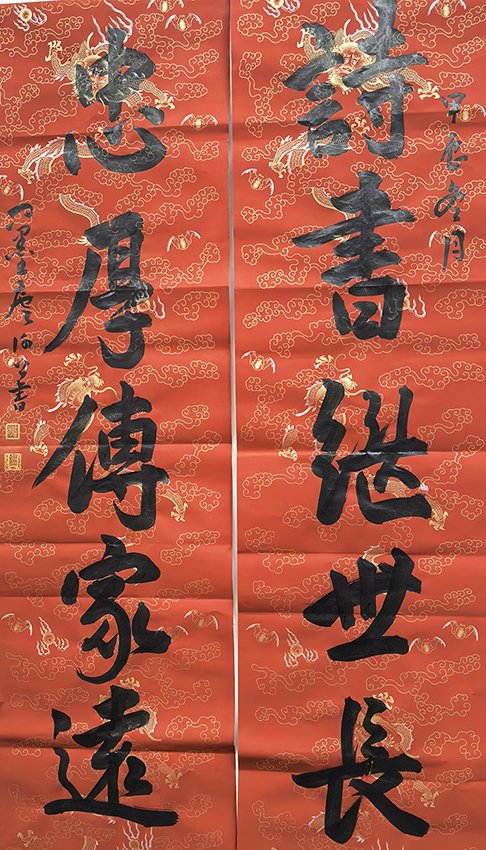 甲辰冬月
詩書继世長
忠厚傳家遠
書